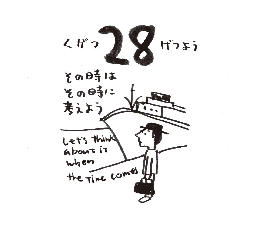 くがつ 28 げつよう
その時は
その時に
考えよう
Let's think
about it
when
the time comes